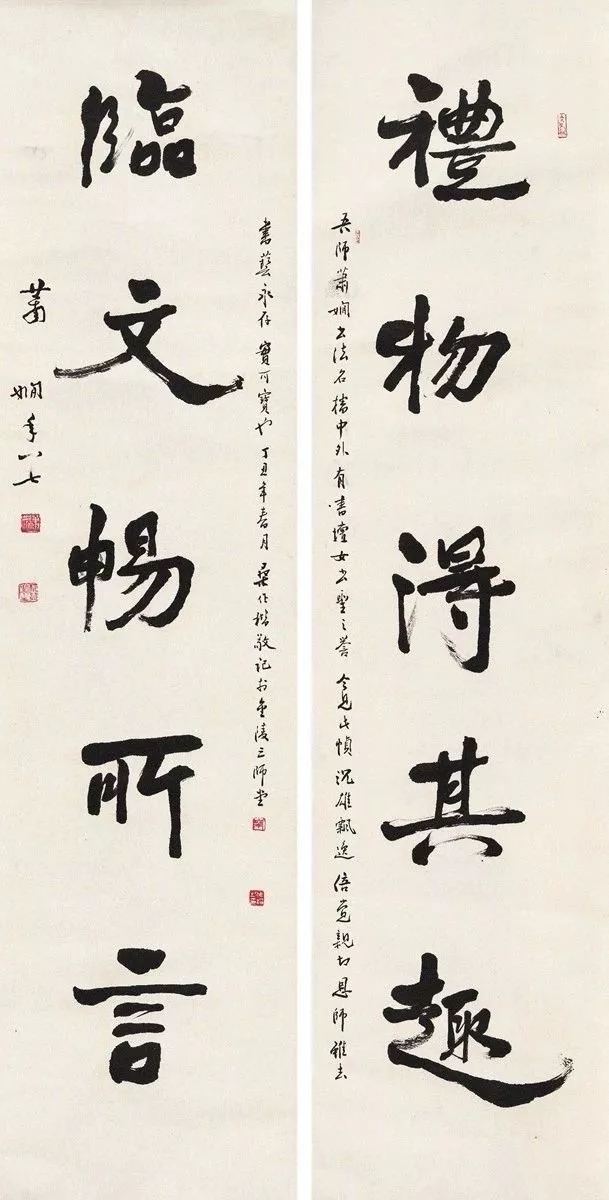 禮物得其趣
吾師蕭嫻書法名播中外有書壇女書聖之譽今見此幀沉雄飄逸倍覺親切恩師雖去
臨文暢所言
書藝永存寶可寶也丁丑年春月桑作楷敬記於金陵三師堂
蕭嫻年八七